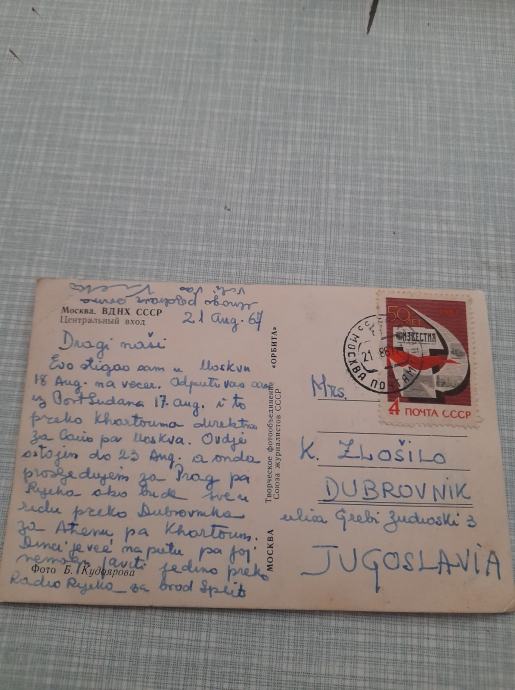 Москва. ВДНХ СССР
Центральный вход
21 Aug. 67
Dragi naši
Evo stigao sam u Moskvu
18 Aug. na večer. Odputovao sam
iz Port Sudana 17. aug. i to
preko Khartouma direktno
za Cairo pa Moskva. Ovdje
ostajem do 23 Aug. a onda
produjem za Prag pa
Rijeka ako bude sve u
redu preko Dubrovnika
za Athenu pa Khartoum.
već na putu pa joj
javiti jedino preko
Radio Rijeka za brod Split
Фото Б. Кудоярова
МОСКВА
Творческое фотообъединение «ОРБИТА»
Союза журналистов СССР
50 ЛЕТ
ИЗВЕСТИЯ
4 ПОЧТА СССР
МОСКВА ПОЧТАМТ
21 8
Mrs.
K. ZLOŠILO
DUBROVNIK
ulica Grebi 3
JUGOSLAVIA